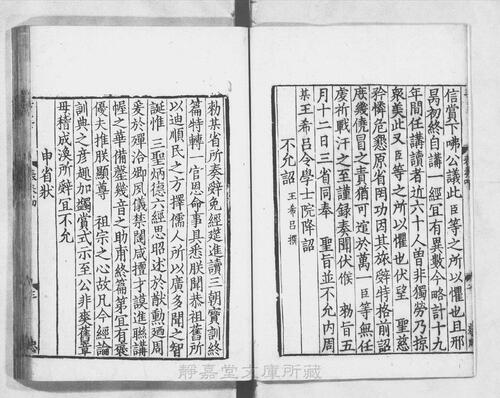 信賞下咈公議此臣等之所以懼也且邢
昺初終自講一經宜有異數今略計十九
年間任講讀者近六十人曽非獨勞乃掠
衆美此又臣等之所以懼也伏望　聖慈
矜憐危懇原省罔功因其旅辤特格前詔
庶幾僥冒之責猶可逭於萬一臣等無任
虔祈戰汗之至謹録奏聞伏候　勑旨五
月十二日三省同奉　聖旨並不允内周
某王希吕令學士院降詔
不允詔　王希吕撰
勑某省所奏辤免經筵進讀三朝寳訓終
篇特轉一官恩命事具悉朕聞恭祖舊所
以迪順民之方擇儒人所以廣多聞之智
誕惟三聖炳德六經思昭述於猷勲廼周
爰於殫洽卿風儀禁闥咸擅才謨進聯講
幄之華備罄幾音之助甫終篇第宜有襃
優大推朕顯尊　祖宗之心故凡今經論
訓典之彦趣加蠲賞式示至公非乘舊章
毋稽成渙所辤宜不允
申省狀
靜嘉堂文庫所藏